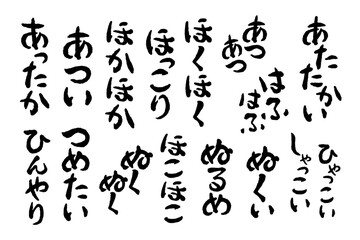 あたたかい
はふ
はふ
あつ
あつ
ほくほく
ほっこり
ほかほか
あつい
あったか
ひゃっこい
しゃっこい
ぬくい
ぬるめ
ほこほこ
ぬく
ぬく
つめたい
ひんやり